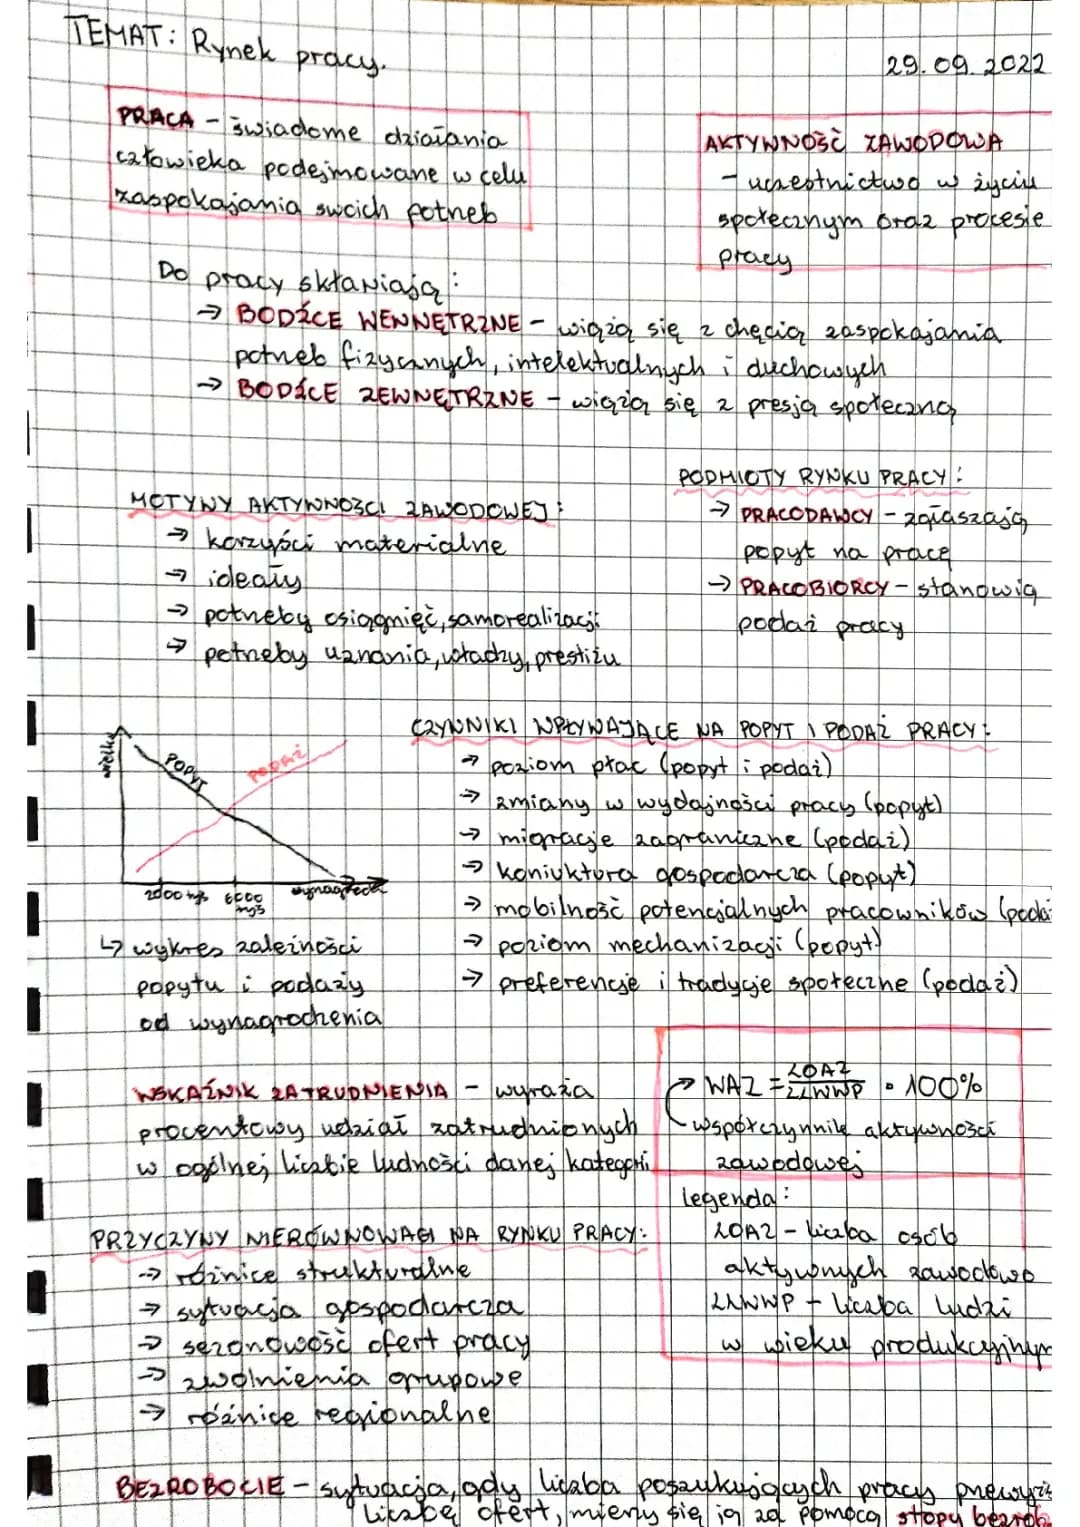 TEMAT: Rynek pracy.
29.09.2022
PRACA - świadome działania
człowieka podejmowane w celu
zaspokajania swoich potrzeb
AKTYWNOŚĆ ZAWODOWA
- uczestnictwo w życiu
społecznym oraz procesie
pracy
Do pracy skłaniają:
→ BODŹCE WEWNĘTRZNE - wiążą się z chęcią zaspokajania
potrzeb fizycznych, intelektualnych i duchowych
→ BODŹCE ZEWNĘTRZNE - wiążą się z presją społeczną
MOTYWY AKTYWNOŚCI ZAWODOWEJ:
→ korzyści materialne
→ ideały
→ potrzeby osiągnięć, samorealizacji
→ potrzeby uznania, władzy, prestiżu
PODMIOTY RYNKU PRACY:
→ PRACODAWCY - zgłaszają
popyt na pracę
→ PRACOBIORCY - stanowią
podaż pracy
wielkość
POPYT
PODAŻ
2000 mqs 6000 wynagrodz
mqs
↳ wykres zależności
popytu i podaży
od wynagrodzenia
CZYNNIKI WPŁYWAJĄCE NA POPYT I PODAŻ PRACY:
→ poziom płac (popyt i podaż)
→ zmiany w wydajności pracy (popyt)
→ migracje zagraniczne (podaż)
→ koniuktura gospodarcza (popyt)
→ mobilność potencjalnych pracowników (poda
→ poziom mechanizacji (popyt)
→ preferencje i tradycje społeczne (podaż)
WSKAŹNIK ZATRUDNIENIA - wyraża
procentowy udział zatrudnionych
w ogólnej liczbie ludności danej kategorii
→ WAZ = LOAZ / LLWWP · 100%
współczynnik aktywności
zawodowej
legenda:
LOAZ - liczba osób
aktywnych zawodowo
LLWWP - liczba ludzi
w wieku produkcyjnym
PRZYCZYNY NIERÓWNOWAGI NA RYNKU PRACY:
→ różnice strukturalne
→ sytuacja gospodarcza
→ sezonowość ofert pracy
→ zwolnienia grupowe
→ różnice regionalne
BEZROBOCIE - sytuacja, gdy liczba poszukujących pracy przewyż
liczbę ofert, mierzy się ją za pomocą stopy bezrob